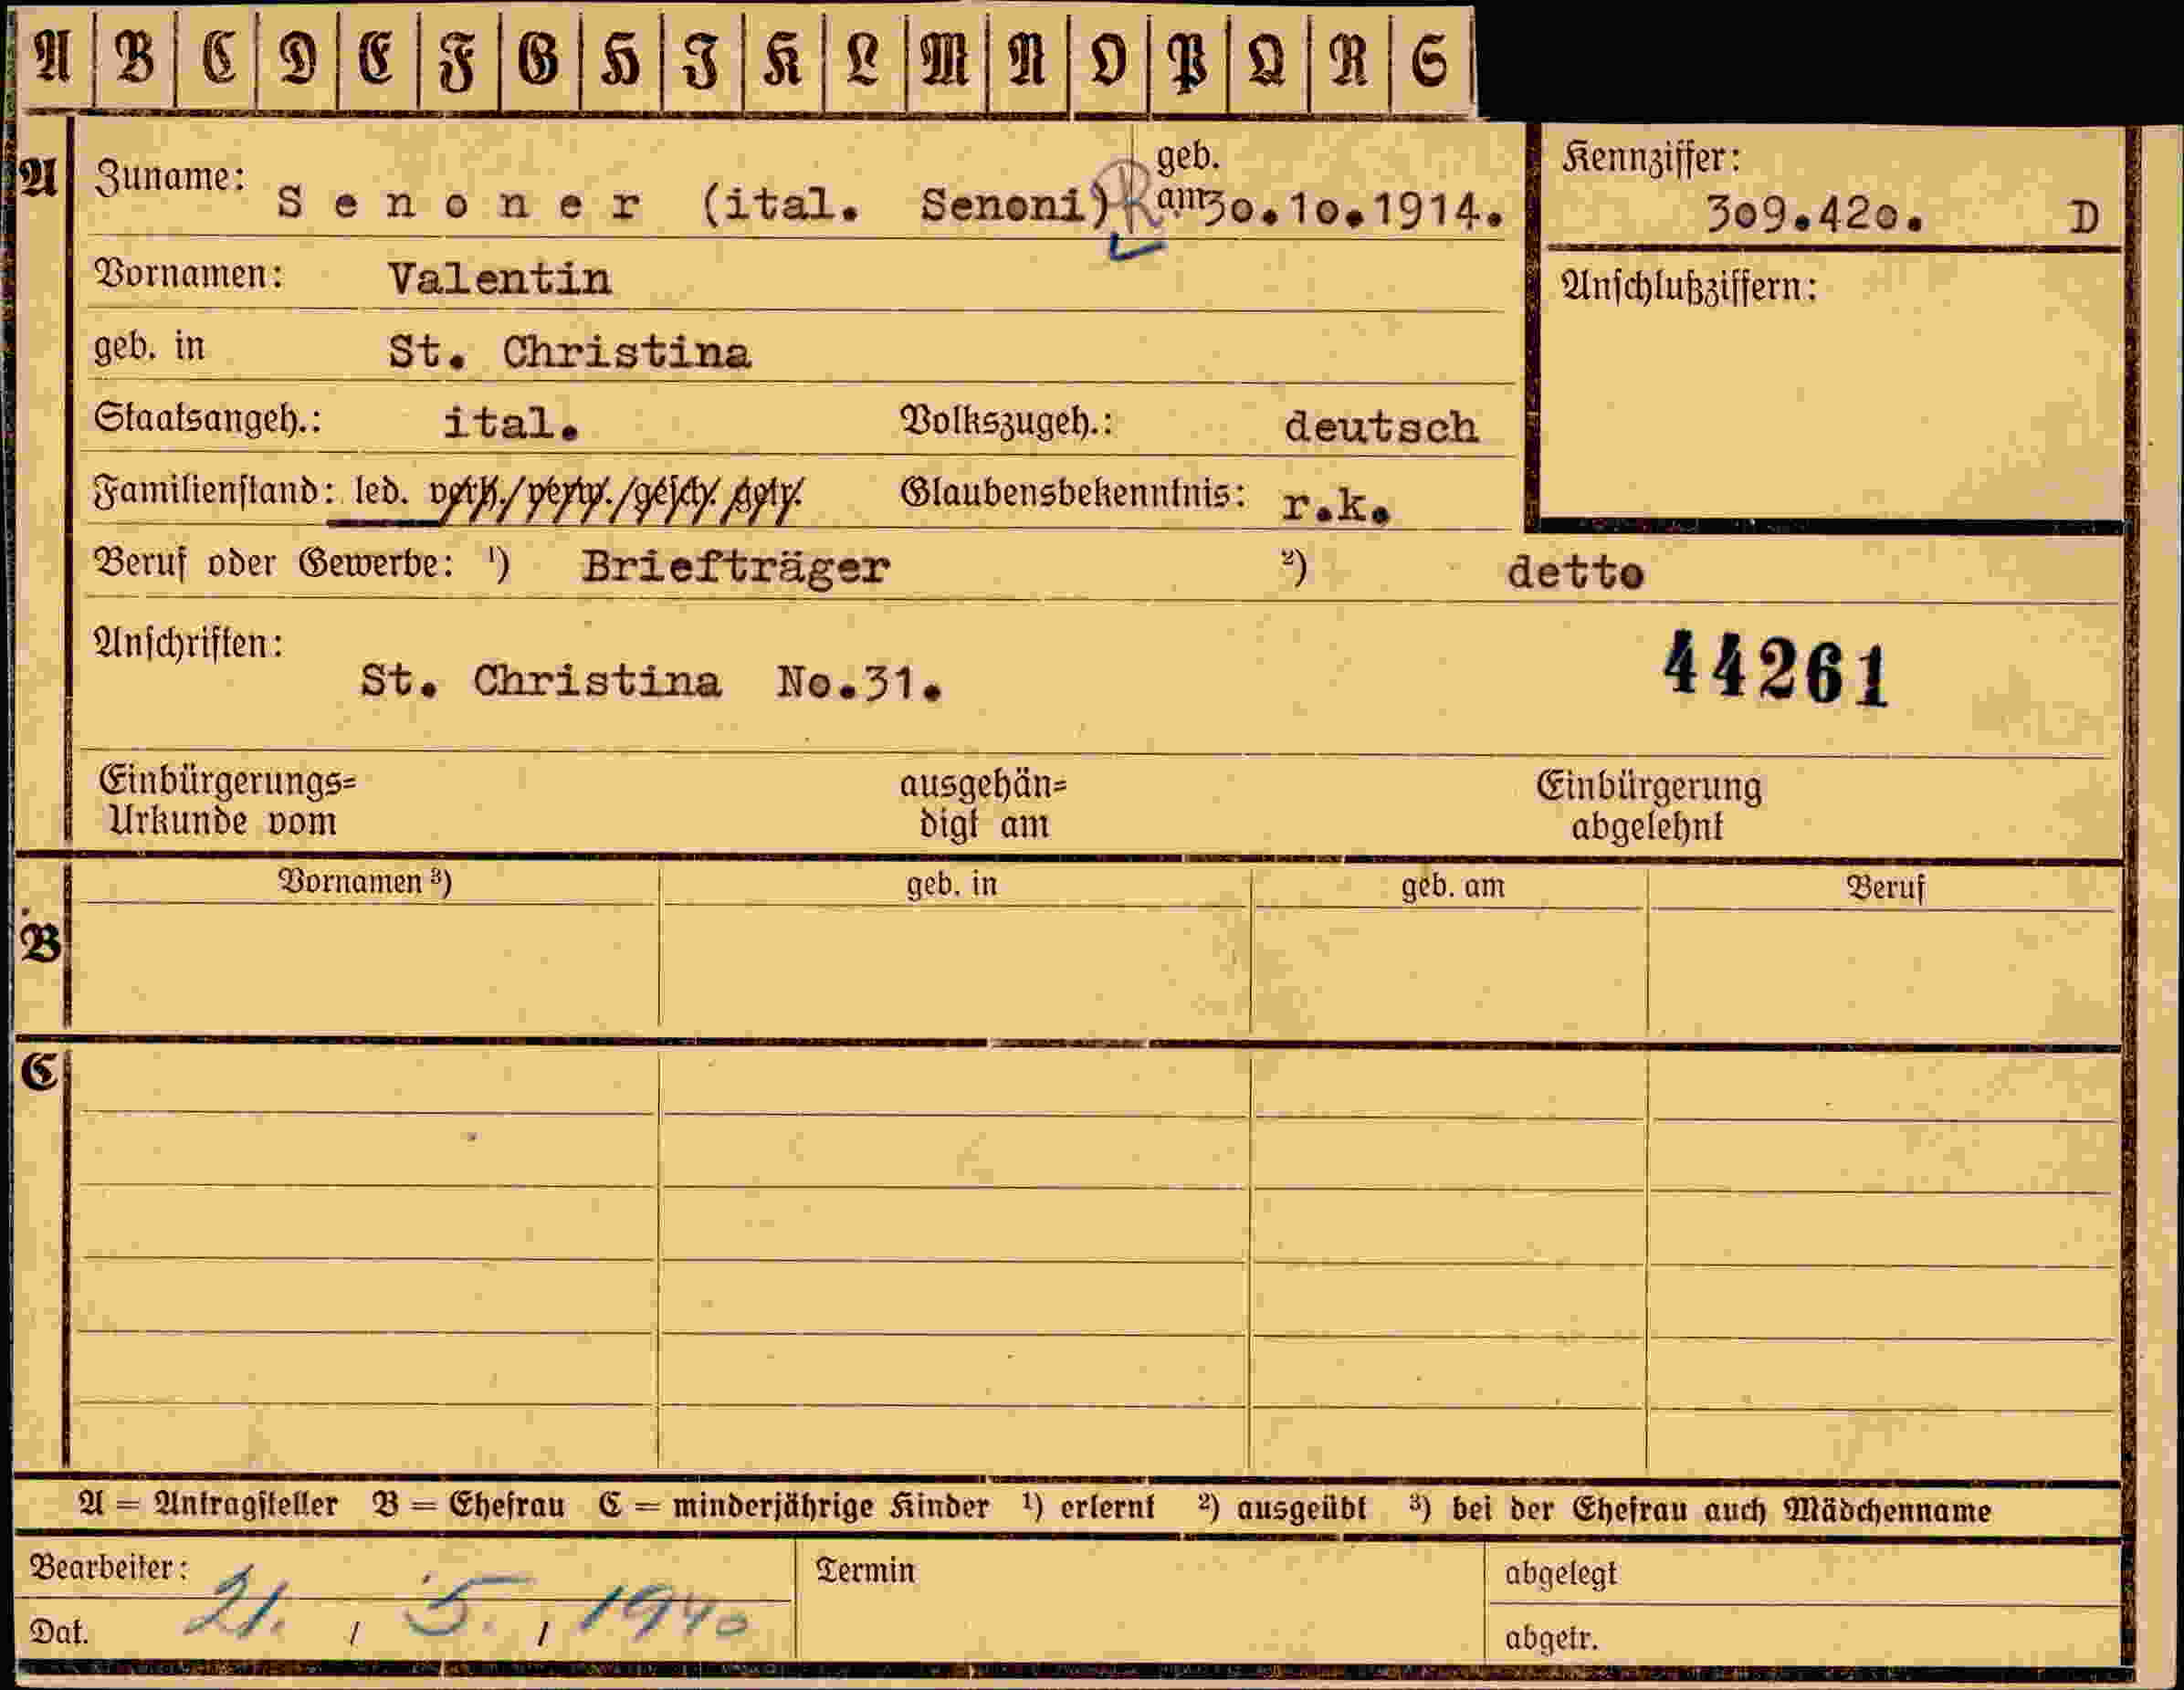 A B C D E F G H I K L M N O P Q R S
A Zuname: Senoner (ital. Senoni) R geb. am 30.10.1914.
Kennziffer: 309.420. D
Vornamen: Valentin
Anschlußziffern:
geb. in St. Christina
Staatsangeh.: ital. Volkszugeh.: deutsch
Familienstand: led. verh./verw./gesch. getr. Glaubensbekenntnis: r.k.
Beruf oder Gewerbe: ¹) Briefträger ²) detto
Anschriften:
St. Christina No.31.
44261
Einbürgerungs= ausgehän= Einbürgerung
Urkunde vom digt am abgelehnt
Vornamen ³) geb. in geb. am Beruf
B
C
A = Antragsteller B = Ehefrau C = minderjährige Kinder ¹) erlernt ²) ausgeübt ³) bei der Ehefrau auch Mädchenname
Bearbeiter: Termin abgelegt
Dat. 21. / 5. / 1940 abgetr.